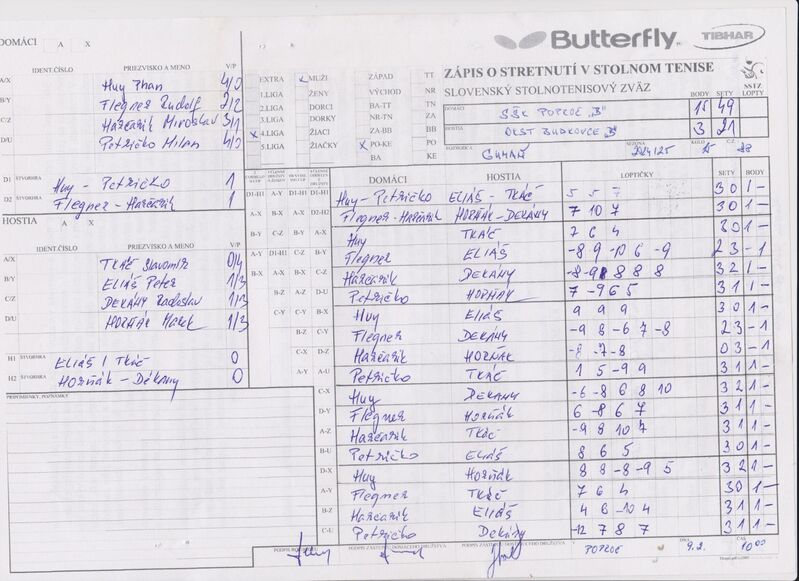 DOMÁCI A X
IDENT.ČÍSLO PRIEZVISKO A MENO V/P
A/X Huy Phan 4/0
B/Y Flegner Rudolf 2/2
C/Z Harčarik Miroslav 3/1
D/U Petričko Milan 4/0
D1 ŠTVORHRA Huy - Petričko 1
D2 ŠTVORHRA Flegner - Harčarik 1
HOSTIA A X
IDENT.ČÍSLO PRIEZVISKO A MENO V/P
A/X TKÁČ Slavomír 0/4
B/Y ELIÁŠ Peter 1/3
C/Z DEKÁNY Radoslav 1/3
D/U HORŇÁK Marek 1/3
H1 ŠTVORHRA ELIÁŠ / TKÁČ 0
H2 ŠTVORHRA HORŇÁK - DEKÁNY 0
PRIPOMIENKY, POZNÁMKY
Butterfly TIBHAR
ZÁPIS O STRETNUTÍ V STOLNOM TENISE
SLOVENSKÝ STOLNOTENISOVÝ ZVÄZ
SSTZ
EXTRA x MUŽI ZÁPAD TT
1.LIGA ŽENY VÝCHOD NR
2.LIGA DORCI BA-TT TN
3.LIGA DORKY NR-TN ZA
x 4.LIGA ŽIACI ZA-BB BB
5.LIGA ŽIAČKY x PO-KE PO
BA KE
BODY SETY LOPTY
DOMÁCI SŠK POPROČ "B" 15 49
HOSTIA OKST BUDKOVCE "B" 3 21
ROZHODCA SEZÓNA 2024/25 KOLO 15 Č.Z. 88
DOMÁCI HOSTIA LOPTIČKY SETY BODY
D1-H1 A-Y D1-H1 D1-H1 Huy - Petričko ELIÁŠ - TKÁČ 5 5 7 3 0 1 -
A-X B-X A-X D2-H2 Flegner - Harčarik HORŇÁK - DEKÁNY 7 10 7 3 0 1 -
B-Y C-Z B-Y A-X Huy TKÁČ 7 6 4 3 0 1 -
A-Y D1-H1 C-Z B-Y Flegner ELIÁŠ -8 9 -10 6 -9 2 3 - 1
B-X A-X B-X C-Z Harčarik DEKÁNY -8 -9 8 8 8 3 2 1 -
B-Z A-Z D-U Petričko HORŇÁK 7 -9 6 5 3 1 1 -
C-Y C-Y B-X Huy Eliáš 9 9 9 3 0 1 -
B-Z C-Y Flegner DEKÁNY -9 8 -6 7 -8 2 3 - 1
C-X D-Z Harčarik HORŇÁK -8 -7 -8 0 3 - 1
A-Y A-U Petričko TKÁČ 1 5 -9 9 3 1 1 -
C-X Huy DEKÁNY -6 -8 6 8 10 3 2 1 -
D-Y Flegner Horňák 6 -8 6 7 3 1 1 -
A-Z Harčarik Tkáč -9 8 10 7 3 1 1 -
B-U Petričko ELIÁŠ 8 6 5 3 0 1 -
D-X Huy Horňák 8 8 -8 -9 5 3 2 1 -
A-Y Flegner TKÁČ 7 6 4 3 0 1 -
B-Z Harčarik ELIÁŠ 4 6 -10 4 3 1 1 -
C-U Petričko Dekány -12 7 8 7 3 1 1 -
PODPIS ROZHODCU PODPIS ZÁSTUPCU DOMÁCEHO DRUŽSTVA PODPIS ZÁSTUPCU HOSŤUJÚCEHO DRUŽSTVA V POPROČ DŇA 9.2. ČAS 10 00